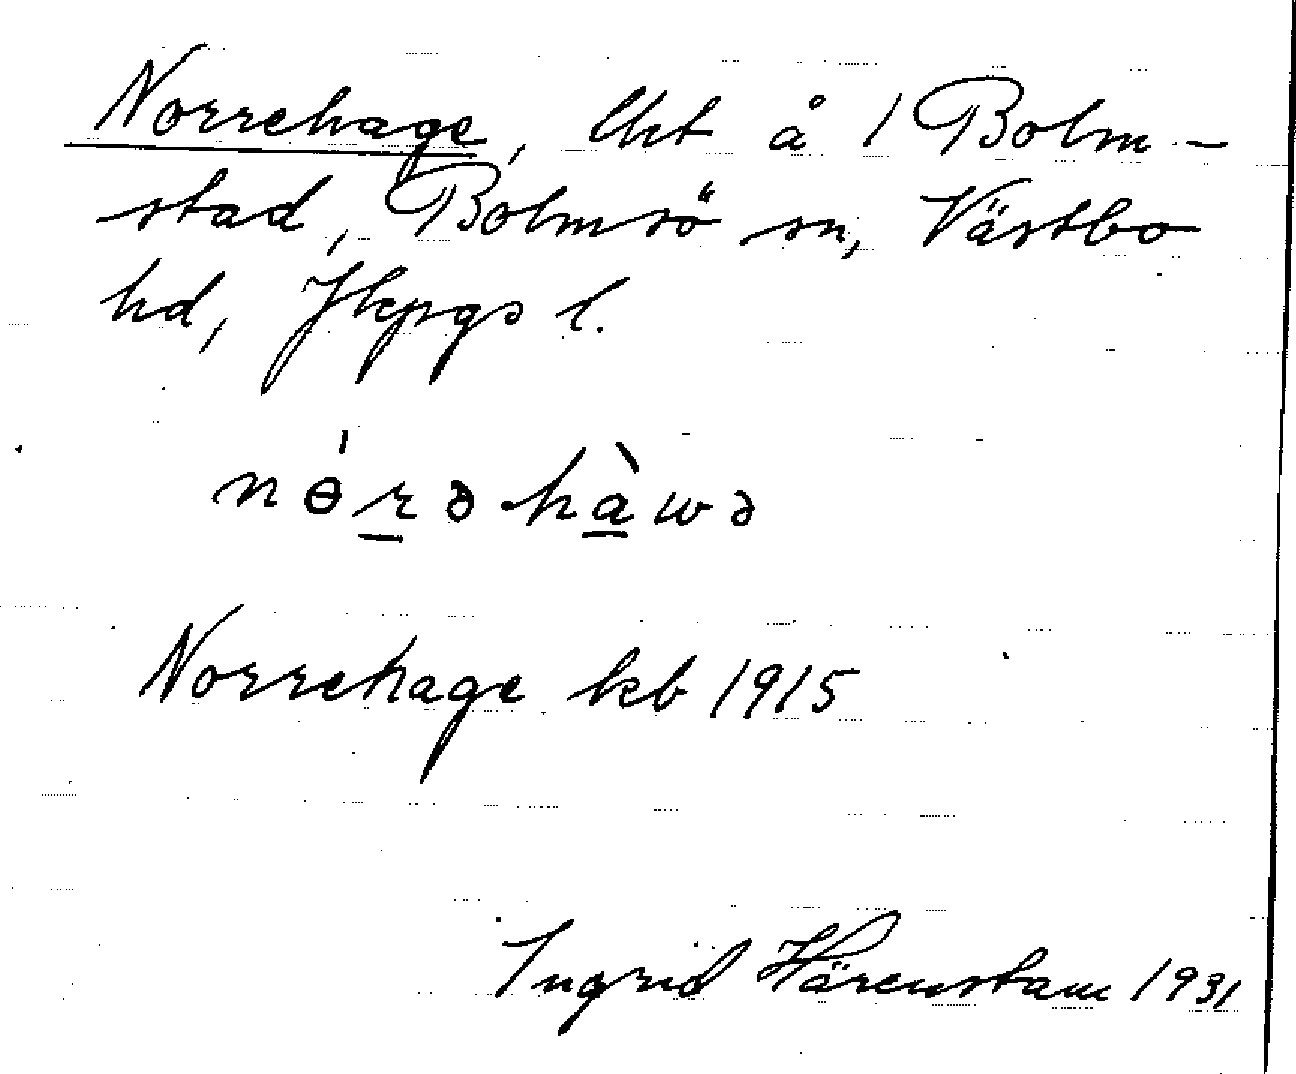 Norrehage, lht å 1 Bolm-
stad, Bolmsö sn, Västbo
hd, Jkpgs l.
nɵ́rəhàwə
Norrehage kb 1915
Ingrid Härenstam 1931